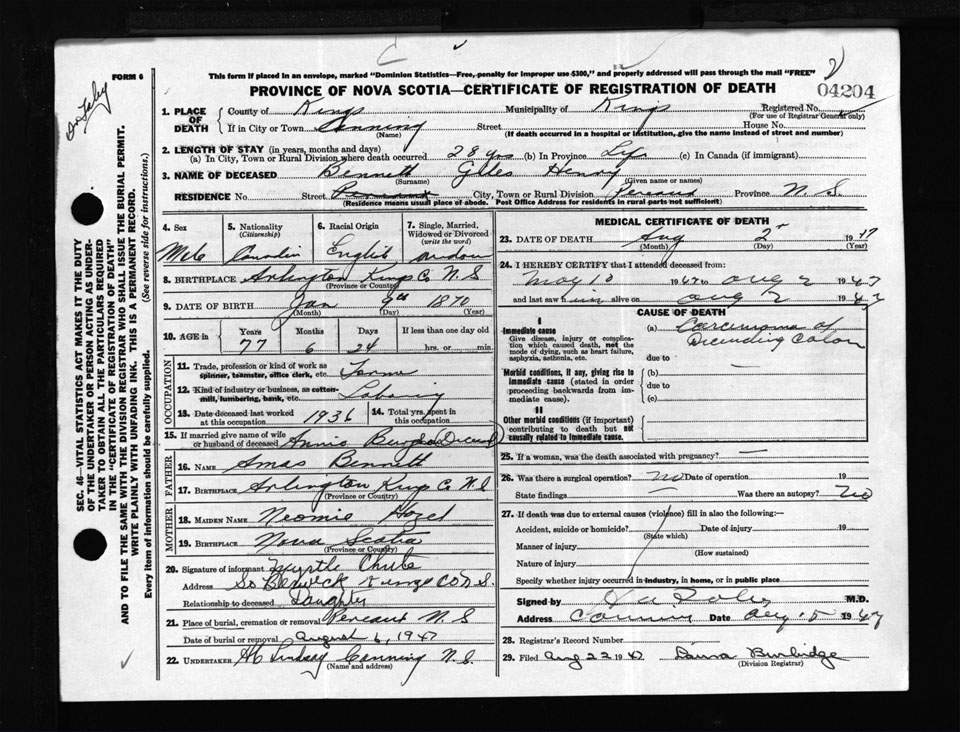 FORM 6
This form if placed in an envelope, marked "Dominion Statistics—Free, penalty for improper use $300," and properly addressed will pass through the mail "FREE"
PROVINCE OF NOVA SCOTIA—CERTIFICATE OF REGISTRATION OF DEATH
04204
1. PLACE OF DEATH County of Kings Municipality of Kings Registered No.
(For use of Registrar General only)
If in City or Town Canning Street House No.
(Name) (If death occurred in a hospital or institution, give the name instead of street and number)
2. LENGTH OF STAY (in years, months and days)
(a) In City, Town or Rural Division where death occurred 28 yrs (b) In Province Life (c) In Canada (if immigrant)
3. NAME OF DECEASED Bennett Giles Henry
(Surname) (Given name or names)
RESIDENCE No. Street City, Town or Rural Division Pereaux Province N. S.
(Residence means usual place of abode. Post Office Address for residents in rural parts not sufficient)
4. Sex 5. Nationality (Citizenship) 6. Racial Origin 7. Single, Married, Widowed or Divorced (write the word)
Male Canadian English widow
8. BIRTHPLACE Arlington Kings Co. N.S
(Province or Country)
9. DATE OF BIRTH Jan 9th 1870
(Month) (Day) (Year)
10. AGE in Years Months Days If less than one day old
77 6 24 hrs. or min.
OCCUPATION
11. Trade, profession or kind of work as spinner, teamster, office clerk, etc. Farmer
12. Kind of industry or business, as cotton-mill, lumbering, bank, etc. Laboring
13. Date deceased last worked at this occupation 1936 14. Total yrs. spent in this occupation
15. If married give name of wife or husband of deceased Annie (Deceased)
FATHER
16. NAME Amas Bennett
17. BIRTHPLACE Arlington Kings Co N.S
(Province or Country)
MOTHER
18. MAIDEN NAME Neomie
19. BIRTHPLACE Nova Scotia
(Province or Country)
20. Signature of informant Myrtle Chute
Address So Berwick Kings Co N.S.
Relationship to deceased Daughter
21. Place of burial, cremation or removal Pereaux N.S
Date of burial or removal August 6, 1947
22. UNDERTAKER Lindsay Canning N.S.
(Name and address)
MEDICAL CERTIFICATE OF DEATH
23. DATE OF DEATH Aug 2 1947
(Month) (Day) (Year)
24. I HEREBY CERTIFY that I attended deceased from:
May 10 1947 to Aug 2 1947
and last saw him alive on Aug 2 1947
CAUSE OF DEATH
I
Immediate cause
Give disease, injury or complication which caused death, not the mode of dying, such as heart failure, asphyxia, asthenia, etc.
(a) Carcinoma of
Descending Colon
due to
Morbid conditions, if any, giving rise to immediate cause (stated in order proceeding backwards from immediate cause).
(b) —
due to
(c)
II
Other morbid conditions (if important) contributing to death but not causally related to immediate cause.
25. If a woman, was the death associated with pregnancy? —
26. Was there a surgical operation? no Date of operation 19
State findings — Was there an autopsy? No
27. If death was due to external causes (violence) fill in also the following:—
Accident, suicide or homicide? Date of injury 19
(State which)
Manner of injury
(How sustained)
Nature of injury
Specify whether injury occurred in industry, in home, or in public place
Signed by M.D.
Address Canning Date Aug 5 1947
28. Registrar's Record Number
29. Filed Aug 22 1947 Laura Burbidge
(Division Registrar)
SEC. 46—VITAL STATISTICS ACT MAKES IT THE DUTY
OF THE UNDERTAKER OR PERSON ACTING AS UNDER-
TAKER TO OBTAIN ALL THE PARTICULARS REQUIRED
IN THE "CERTIFICATE OF REGISTRATION OF DEATH"
AND TO FILE THE SAME WITH THE DIVISION REGISTRAR WHO SHALL ISSUE THE BURIAL PERMIT.
WRITE PLAINLY WITH UNFADING INK. THIS IS A PERMANENT RECORD.
Every item of information should be carefully supplied. (See reverse side for instructions.)